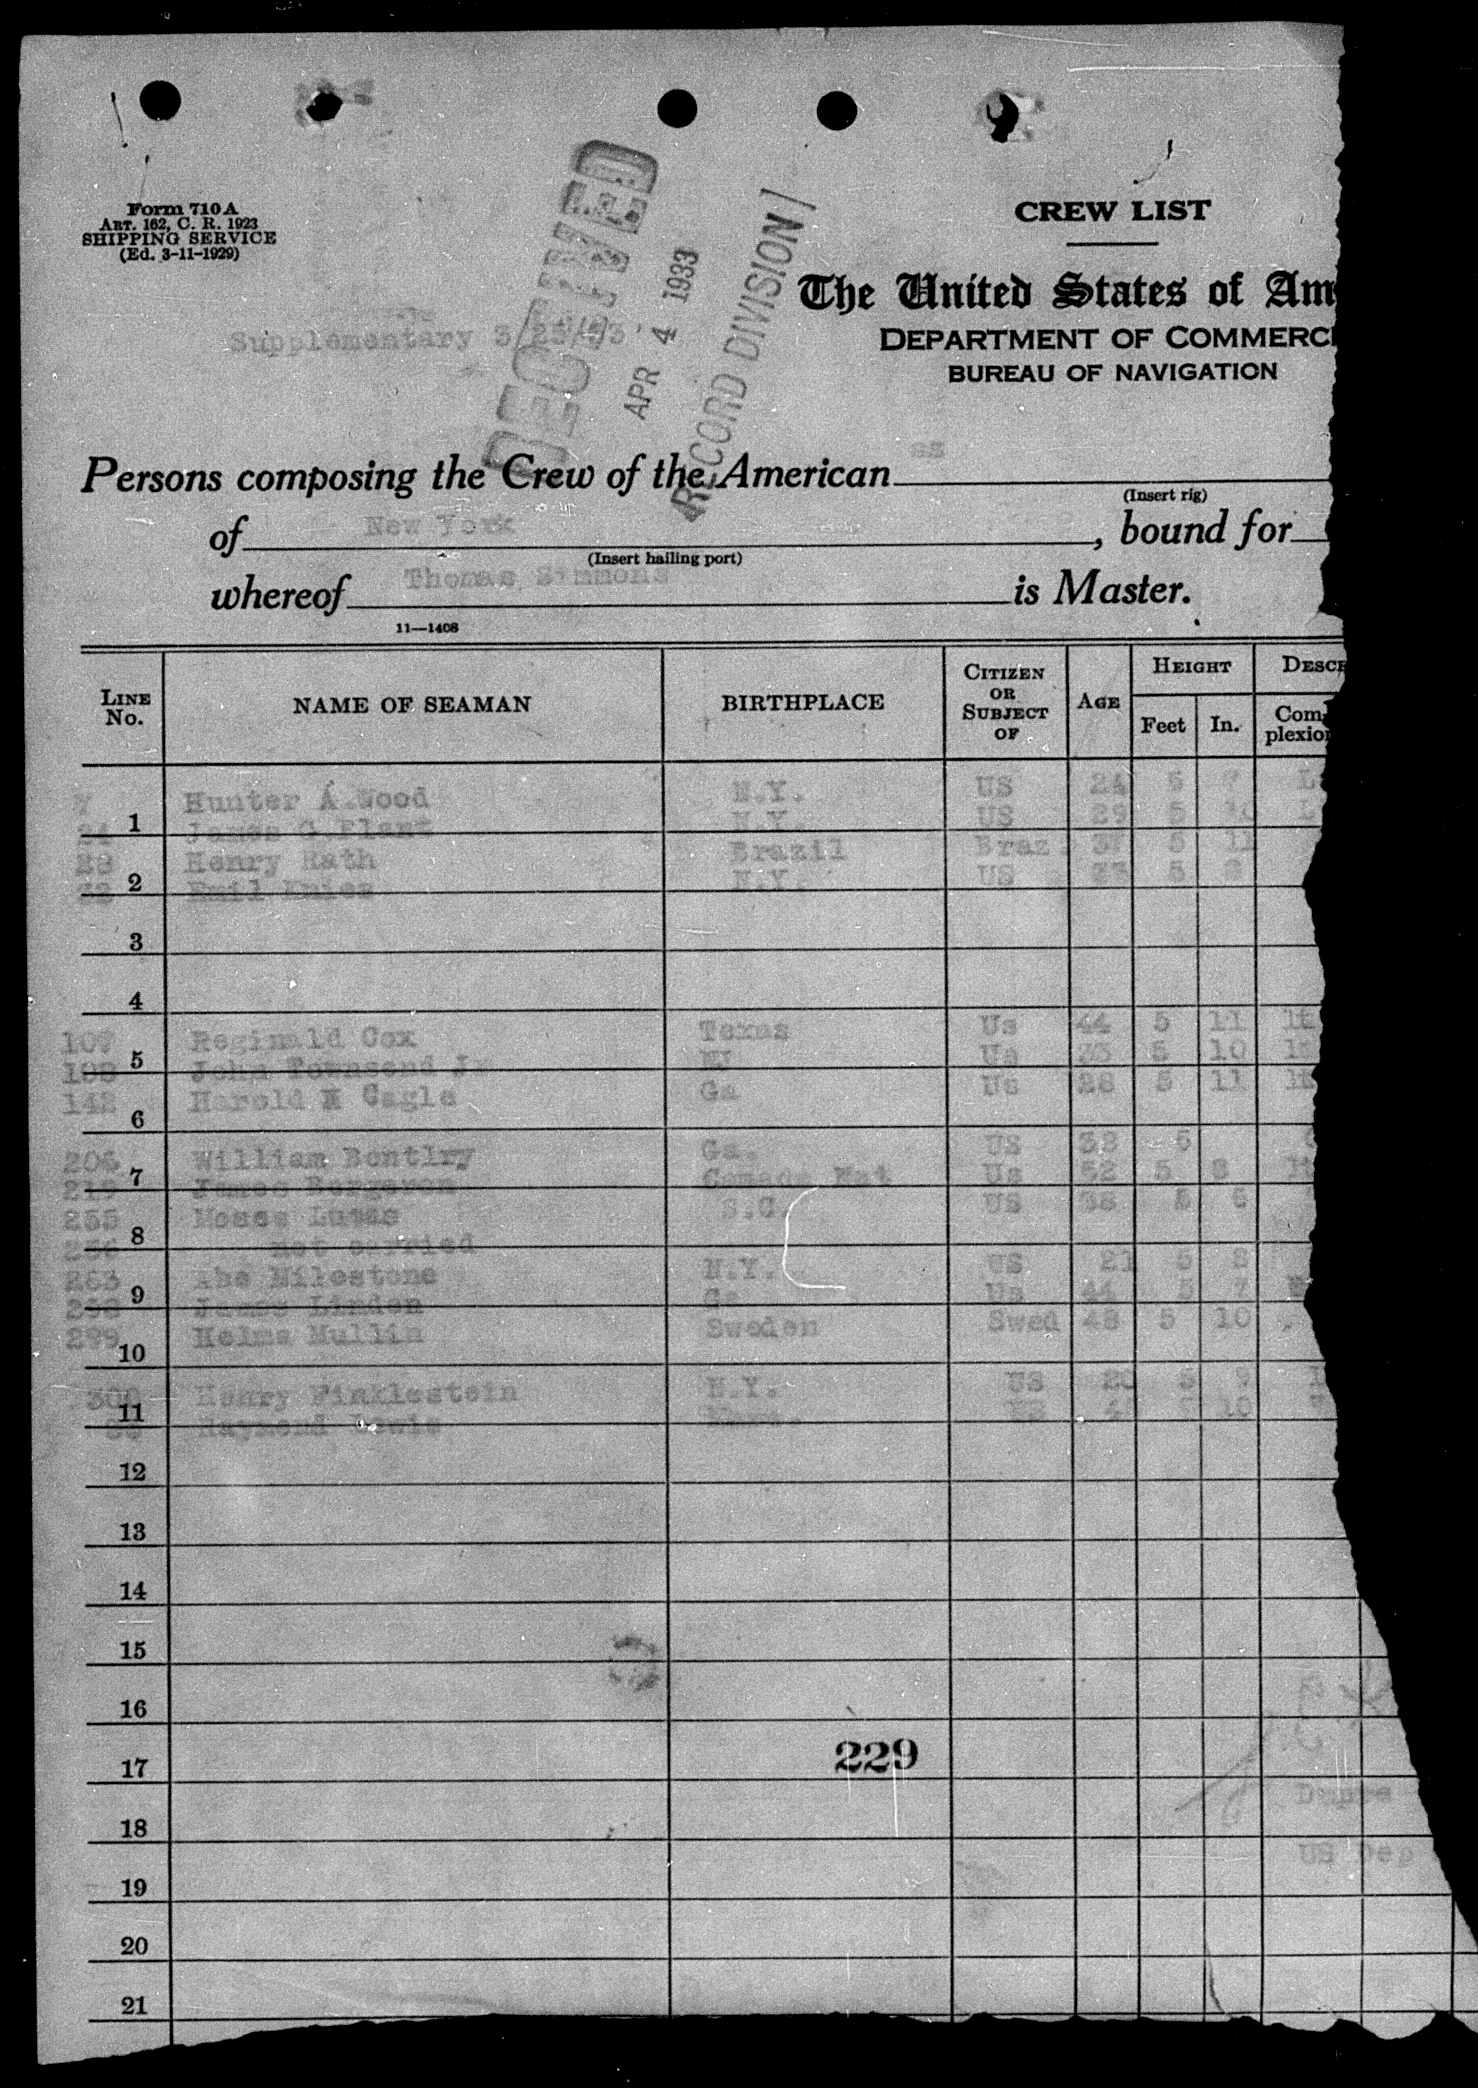 Form 710 A
ART. 162, C. R. 1923
SHIPPING SERVICE
(Ed. 3-11-1929)
Supplementary 3/25/33
RECEIVED
APR 4 1933
RECORD DIVISION
CREW LIST
The United States of Am
DEPARTMENT OF COMMERC
BUREAU OF NAVIGATION
Persons composing the Crew of the American ss
(Insert rig)
of New York, bound for
(Insert hailing port)
whereof Thomas Simmons is Master.
11—1408
LINE No. NAME OF SEAMAN BIRTHPLACE CITIZEN OR SUBJECT OF AGE HEIGHT Feet In. DESC Com- plexion
7 Hunter A.Wood N.Y. US 24 5 7 L
1
James G.Plant N.Y. US 29 5 10 L
28 Henry Rath Brazil Braz 37 5 11
2
32 Emil Knies N.Y. US 5
3
4
107 Reginald Cox Texas Us 44 5 11 lt
5
108 John Townsend Jr NJ Us 5 10 lt
142 Harold H Cagle Ga Us 28 5 11 lt
6
206 William Bentlry Ga. US 38 5
7
215 James Bergeron Canada Nat Us 52 5 8
255 Moses Lucas S.C. US 38 5 6
8
256 not carried
263 Abe Milestone N.Y. US 21 5 8
9
298 James Linden Ga Us 44 5 7
299 Helms Mullin Sweden Swed 48 5 10
10
300 Henry Finklestein N.Y. US 20 5 9
11
Raymond Lewis US 10
12
13
14
15
16
229
17
18
US Dep
19
20
21